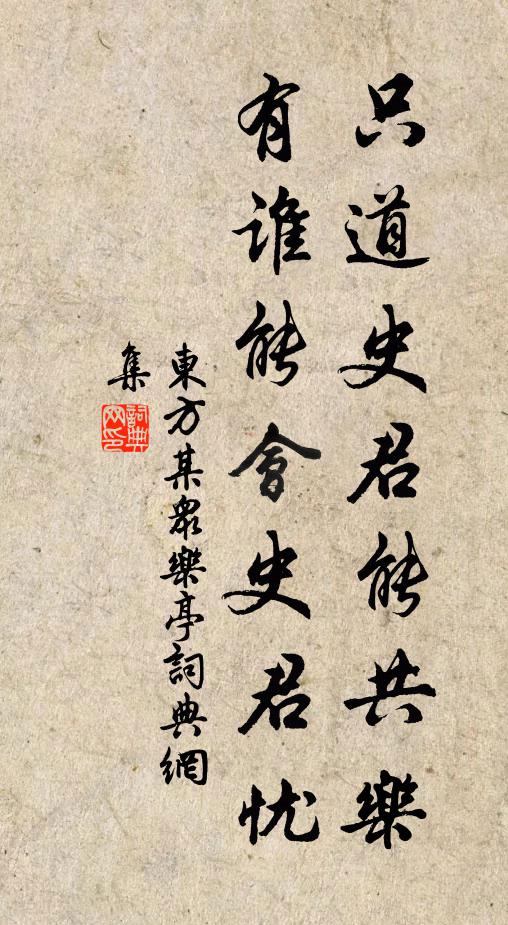 只道史君能共樂
有谁能會史君忧
東方某眾樂亭詞典網
集
詞典網印